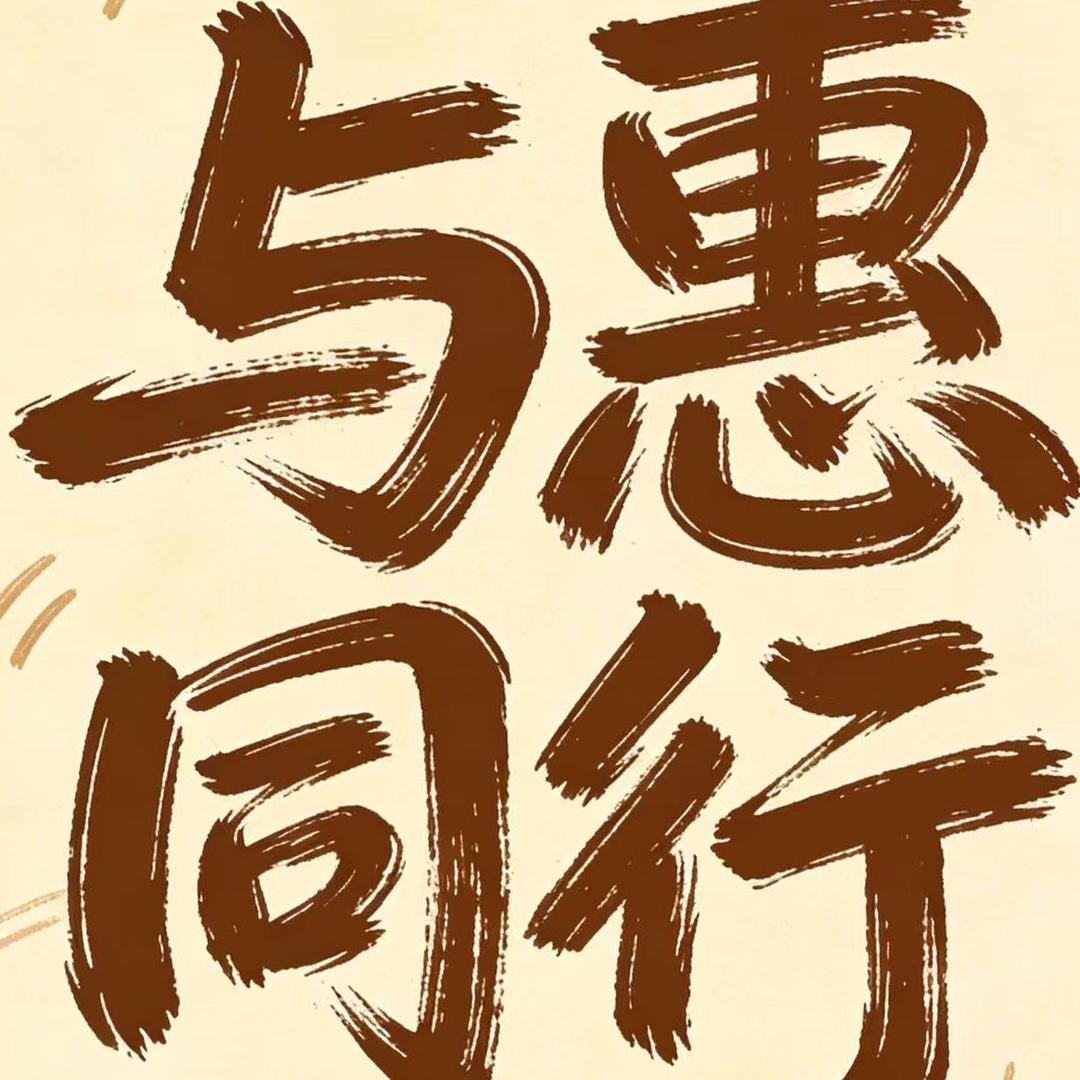 与惠
同行